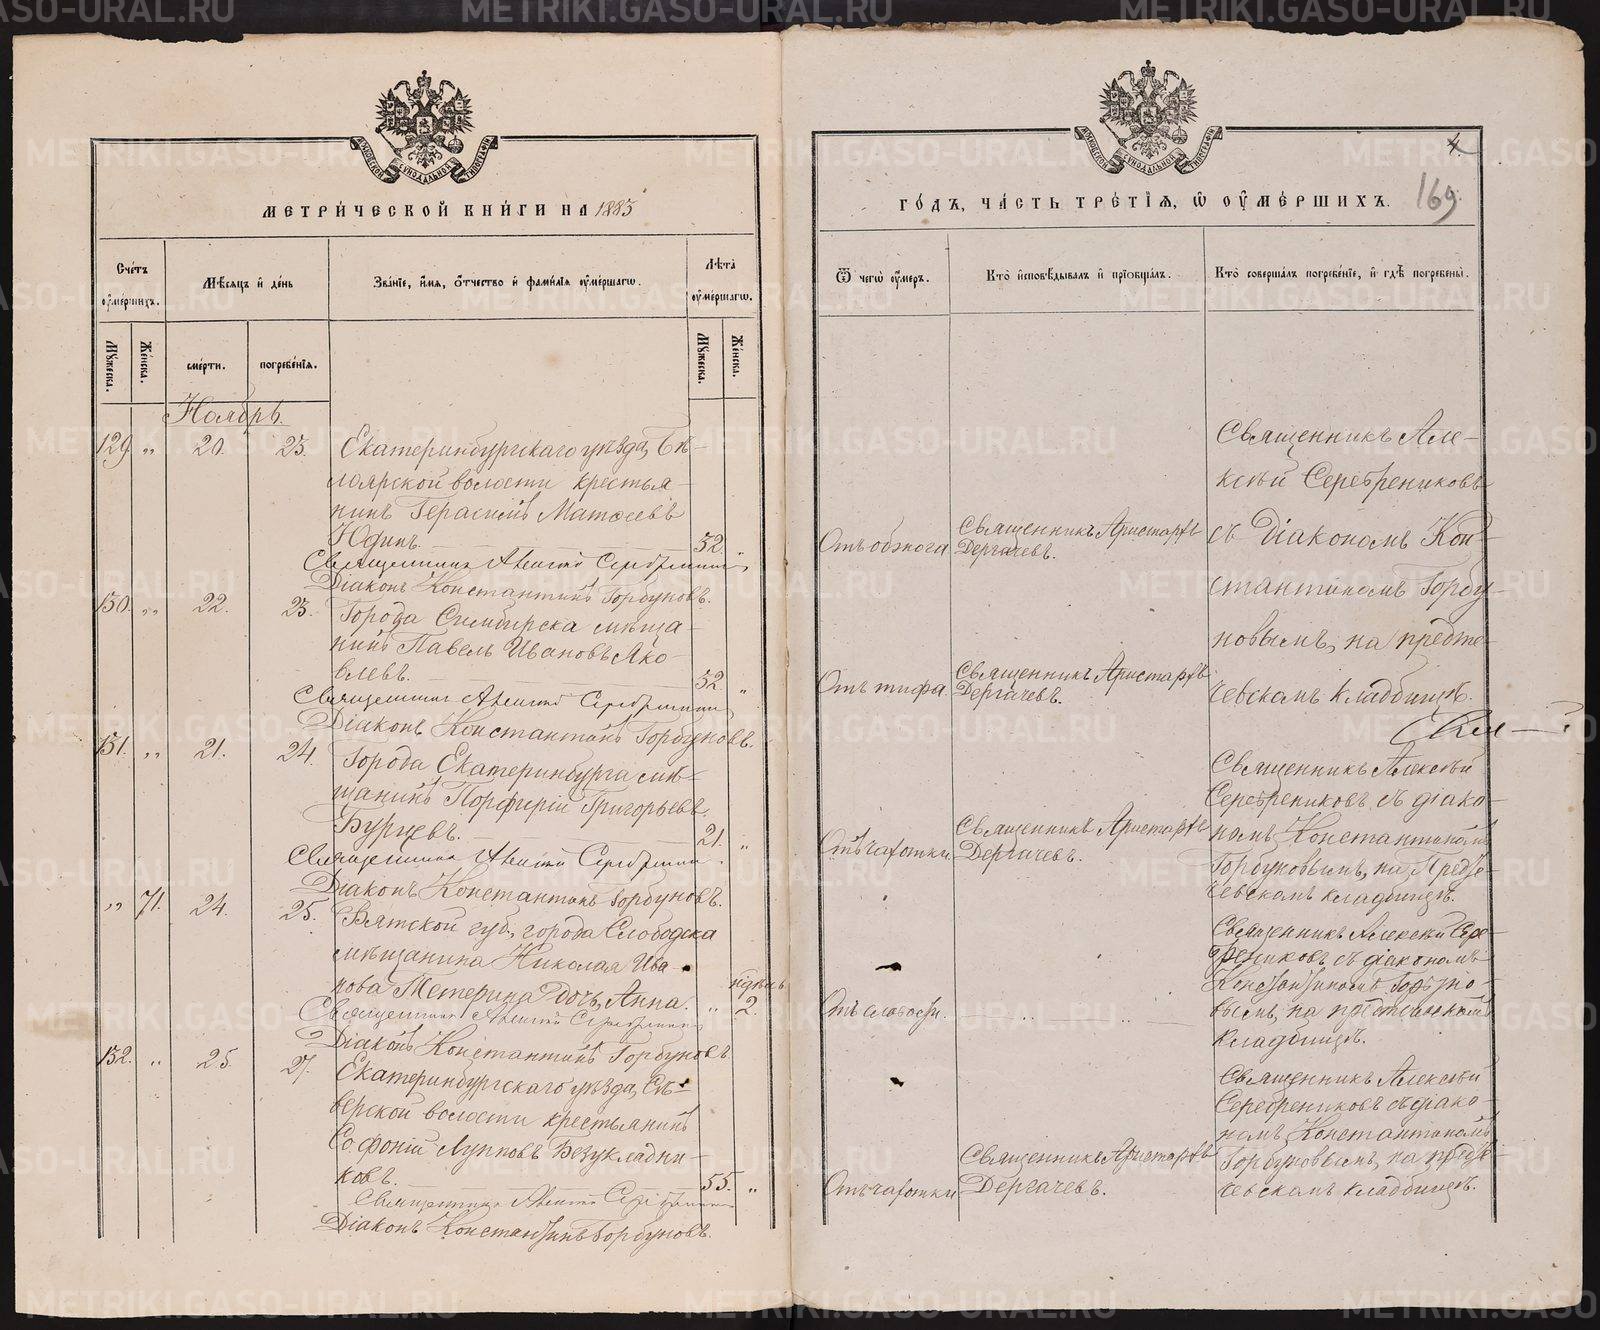 МЕТРИ́ЧЕСКОЙ КНИ́ГИ НА 1883
Сче́тъ оу҆ме́ршихъ.
Мѣ́сяцъ и҆ де́нь
Зва́нїе, и҆́мѧ, ѻ҆́тчество и҆ фами́лїѧ оу҆ме́ршагѡ.
Лѣ́та оу҆ме́ршагѡ.
Мꙋ́жеска.
Же́нска.
сме́рти.
погребе́нїѧ.
Мꙋ́жеска.
Же́нска.
Ноябрь.
129 „ 20. 23. Екатеринбургскаго уѣзда, Бѣ-
лоярской волости крестья-
нинъ Герасимъ Матѳеевъ
Юдинъ. 52. „
Священникъ Алексій Серебренниковъ
Діаконъ Константинъ Горбуновъ.
130. „ 22. 23. Города Симбирска мѣща-
нинъ Павелъ Ивановъ Яко-
влевъ. 52 „
Священникъ Алексій Серебренниковъ
Діаконъ Константинъ Горбуновъ.
131. „ 21. 24. Города Екатеринбурга мѣ-
щанинъ Порфирій Григорьевъ
Бурцевъ. 21. „
Священникъ Алексій Серебренниковъ
Діаконъ Константинъ Горбуновъ.
„ 71. 24. 25. Вятской губ., города Слободска
мѣщанина Николая Ива-
нова Метерина дочь, Анна. „ 2.
Священникъ Алексій Серебренниковъ
Діаконъ Константинъ Горбуновъ
132. „ 25. 27. Екатеринбургскаго уѣзда, Сѣ-
верской волости крестьянинъ
Софоній Лупповъ Безукладни-
ковъ. 55. „
Священникъ Алексій Серебренниковъ
Діаконъ Константинъ Горбуновъ.
ГО́ДЪ, ЧА́СТЬ ТРЕ́ТЇѦ, Ѡ҆ ОУ҆МЕ́РШИХЪ. 169.
Ѿ чегѡ̀ оу҆́меръ.
Кто̀ и҆сповѣ́дывалъ и҆ прїѡбща́лъ.
Кто̀ соверша́лъ погребе́нїе, и҆ гдѣ̀ погребены̀.
Отъ обжога
Священникъ Аристархъ
Дергачевъ.
Священникъ Але-
ксѣй Серебрениковъ
съ Діакономъ Кон-
стантиномъ Горбу-
новымъ, на предте-
чевскомъ кладбищѣ.
Отъ тифа.
Священникъ Аристархъ
Дергачевъ.
Отъ чахотки
Священникъ Аристархъ
Дергачевъ.
Священникъ Алексѣй
Серебрениковъ съ діако-
номъ Константиномъ
Горбуновымъ, на Предте-
чевскомъ кладбищѣ.
Отъ слабости.
Священникъ Алексѣй Сере-
брениковъ съ діакономъ
Константиномъ Горбуно-
вымъ, на предтечевскомъ
кладбищѣ.
Отъ чахотки
Священникъ Аристархъ
Дергачевъ.
Священникъ Алексѣй
Серебрениковъ съ діако-
номъ Константиномъ
Горбуновымъ, на предте-
чевскомъ кладбищѣ.
METRIKI.GASO-URAL.RU